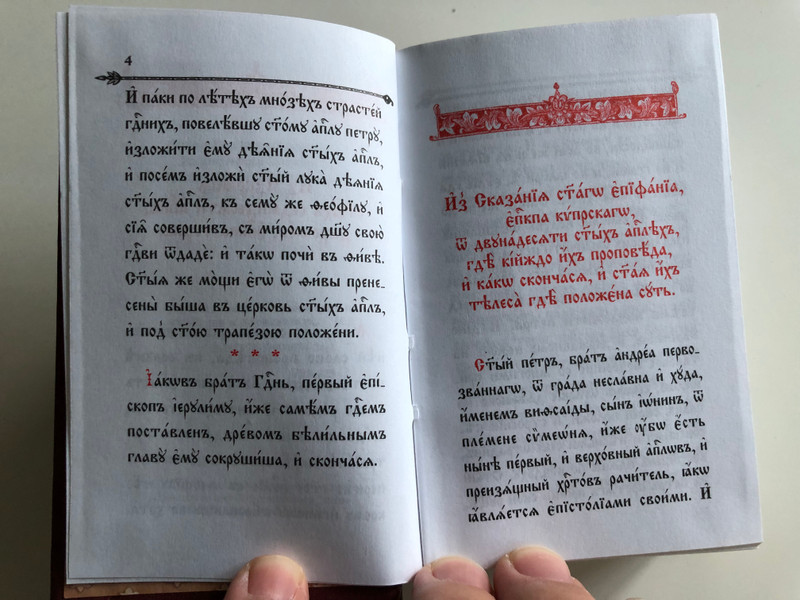 4
И҆ па́ки по лѣ́тѣхъ мно́зѣхъ страсте́й
гдⷭ҇нихъ, повелѣ́вшу ст҃о́му а҆пⷭ҇лу петру̀,
и҆зложи́ти є҆мꙋ̀ дѣѧ҄нїѧ ст҃ы́хъ а҆пⷭ҇лъ,
и҆ посе́мъ и҆зложѝ ст҃ы́й лука̀ дѣѧ҄нїѧ
ст҃ы́хъ а҆пⷭ҇лъ, къ семꙋ́ же ѳео́фїлꙋ, и҆
сїѧ̑ соверши́въ, съ ми́ромъ дꙋ́шꙋ свою̀
гдⷭ҇ви ѿдадѐ: и҆ та́кѡ почѝ въ ѳи́вѣ.
Ст҃ы̑ѧ же мо́щи є҆гѡ̀ ѿ ѳи́вы прене-
сены̀ бы́ша въ це́рковь ст҃ы́хъ а҆пⷭ҇лъ,
и҆ под̾ ст҃о́ю трапе́зою положе́ни.
* * *
І҆а́кѡвъ бра́тъ Гдⷭ҇нь, пе́рвый є҆пі́-
скопъ і҆ерꙋли́мꙋ, и҆́же самѣ́мъ гдⷭ҇емъ
поста́вленъ, дре́вомъ бѣли́льнымъ
главꙋ̀ є҆мꙋ̀ сокрꙋши́ша, и҆ сконча́сѧ.
И҆з̾ Сказа́нїѧ ст҃а́гѡ є҆піфа́нїа,
є҆пⷭ҇кпа кѵ́прскагѡ,
ѿ двꙋна́десѧти ст҃ы́хъ а҆пⷭ҇лѣхъ,
гдѣ̀ кі́йждо и҆́хъ проповѣ́да,
и҆ ка́кѡ сконча́сѧ, и҆ ст҃а́ѧ и҆́хъ
тѣлеса̀ гдѣ̀ поло́жена сꙋ́ть.
Ст҃ы́й пе́тръ, бра́тъ а҆ндре́а перво-
зва́ннагѡ, ѿ гра́да несла́вна и҆ хꙋ́да,
и҆́менемъ виѳсаі́ды, сы́нъ і҆ѡ́нинъ, ѿ
пле́мене сѷмеѡ́нѧ, и҆́же ᲂу҆́бѡ є҆́сть
ны́нѣ пе́рвый, и҆ верхо́вный а҆пⷭ҇лѡвъ, и҆
преизѧ́щный хрⷭ҇то́въ рачи́тель, ꙗ҆́кѡ
ꙗ҆влѧ́етсѧ є҆пісто́лїами свои́ми. И҆